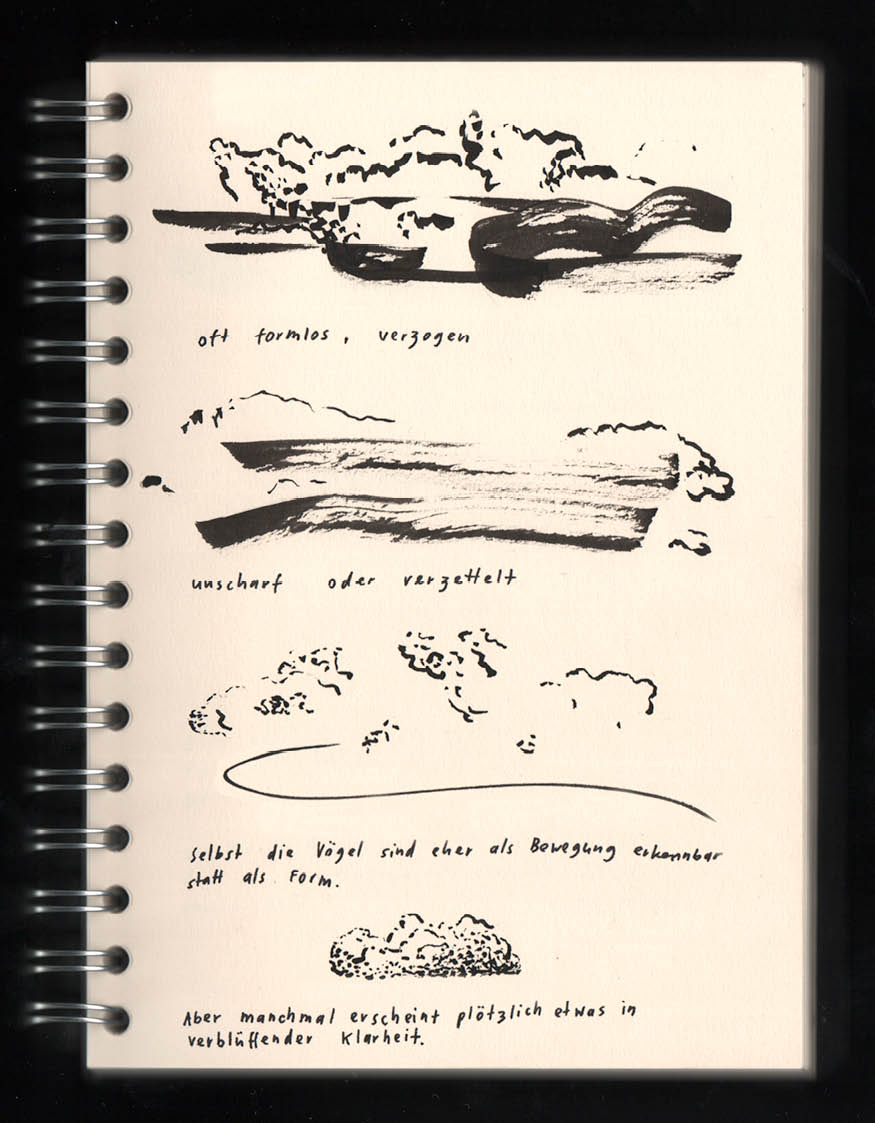 oft formlos, verzogen
unscharf oder verzettelt
Selbst die Vögel sind eher als Bewegung erkennbar
statt als Form.
Aber manchmal erscheint plötzlich etwas in
verblüffender Klarheit.